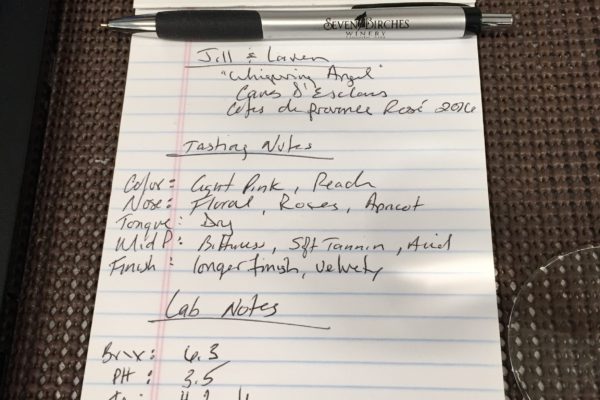 SEVEN BIRCHES
WINERY
Jill & Lauren
"Whispering Angel"
Caves D'Esclans
Côtes de provence Rosé 2016
Tasting Notes
Color: Light Pink, Peach
Nose: Floral, Roses, Apricot
Tongue: Dry
Mid P: Bitterness, Soft Tannin, Acid
Finish: longer finish, velvety
Lab Notes
Brix: 6.3
PH: 3.5